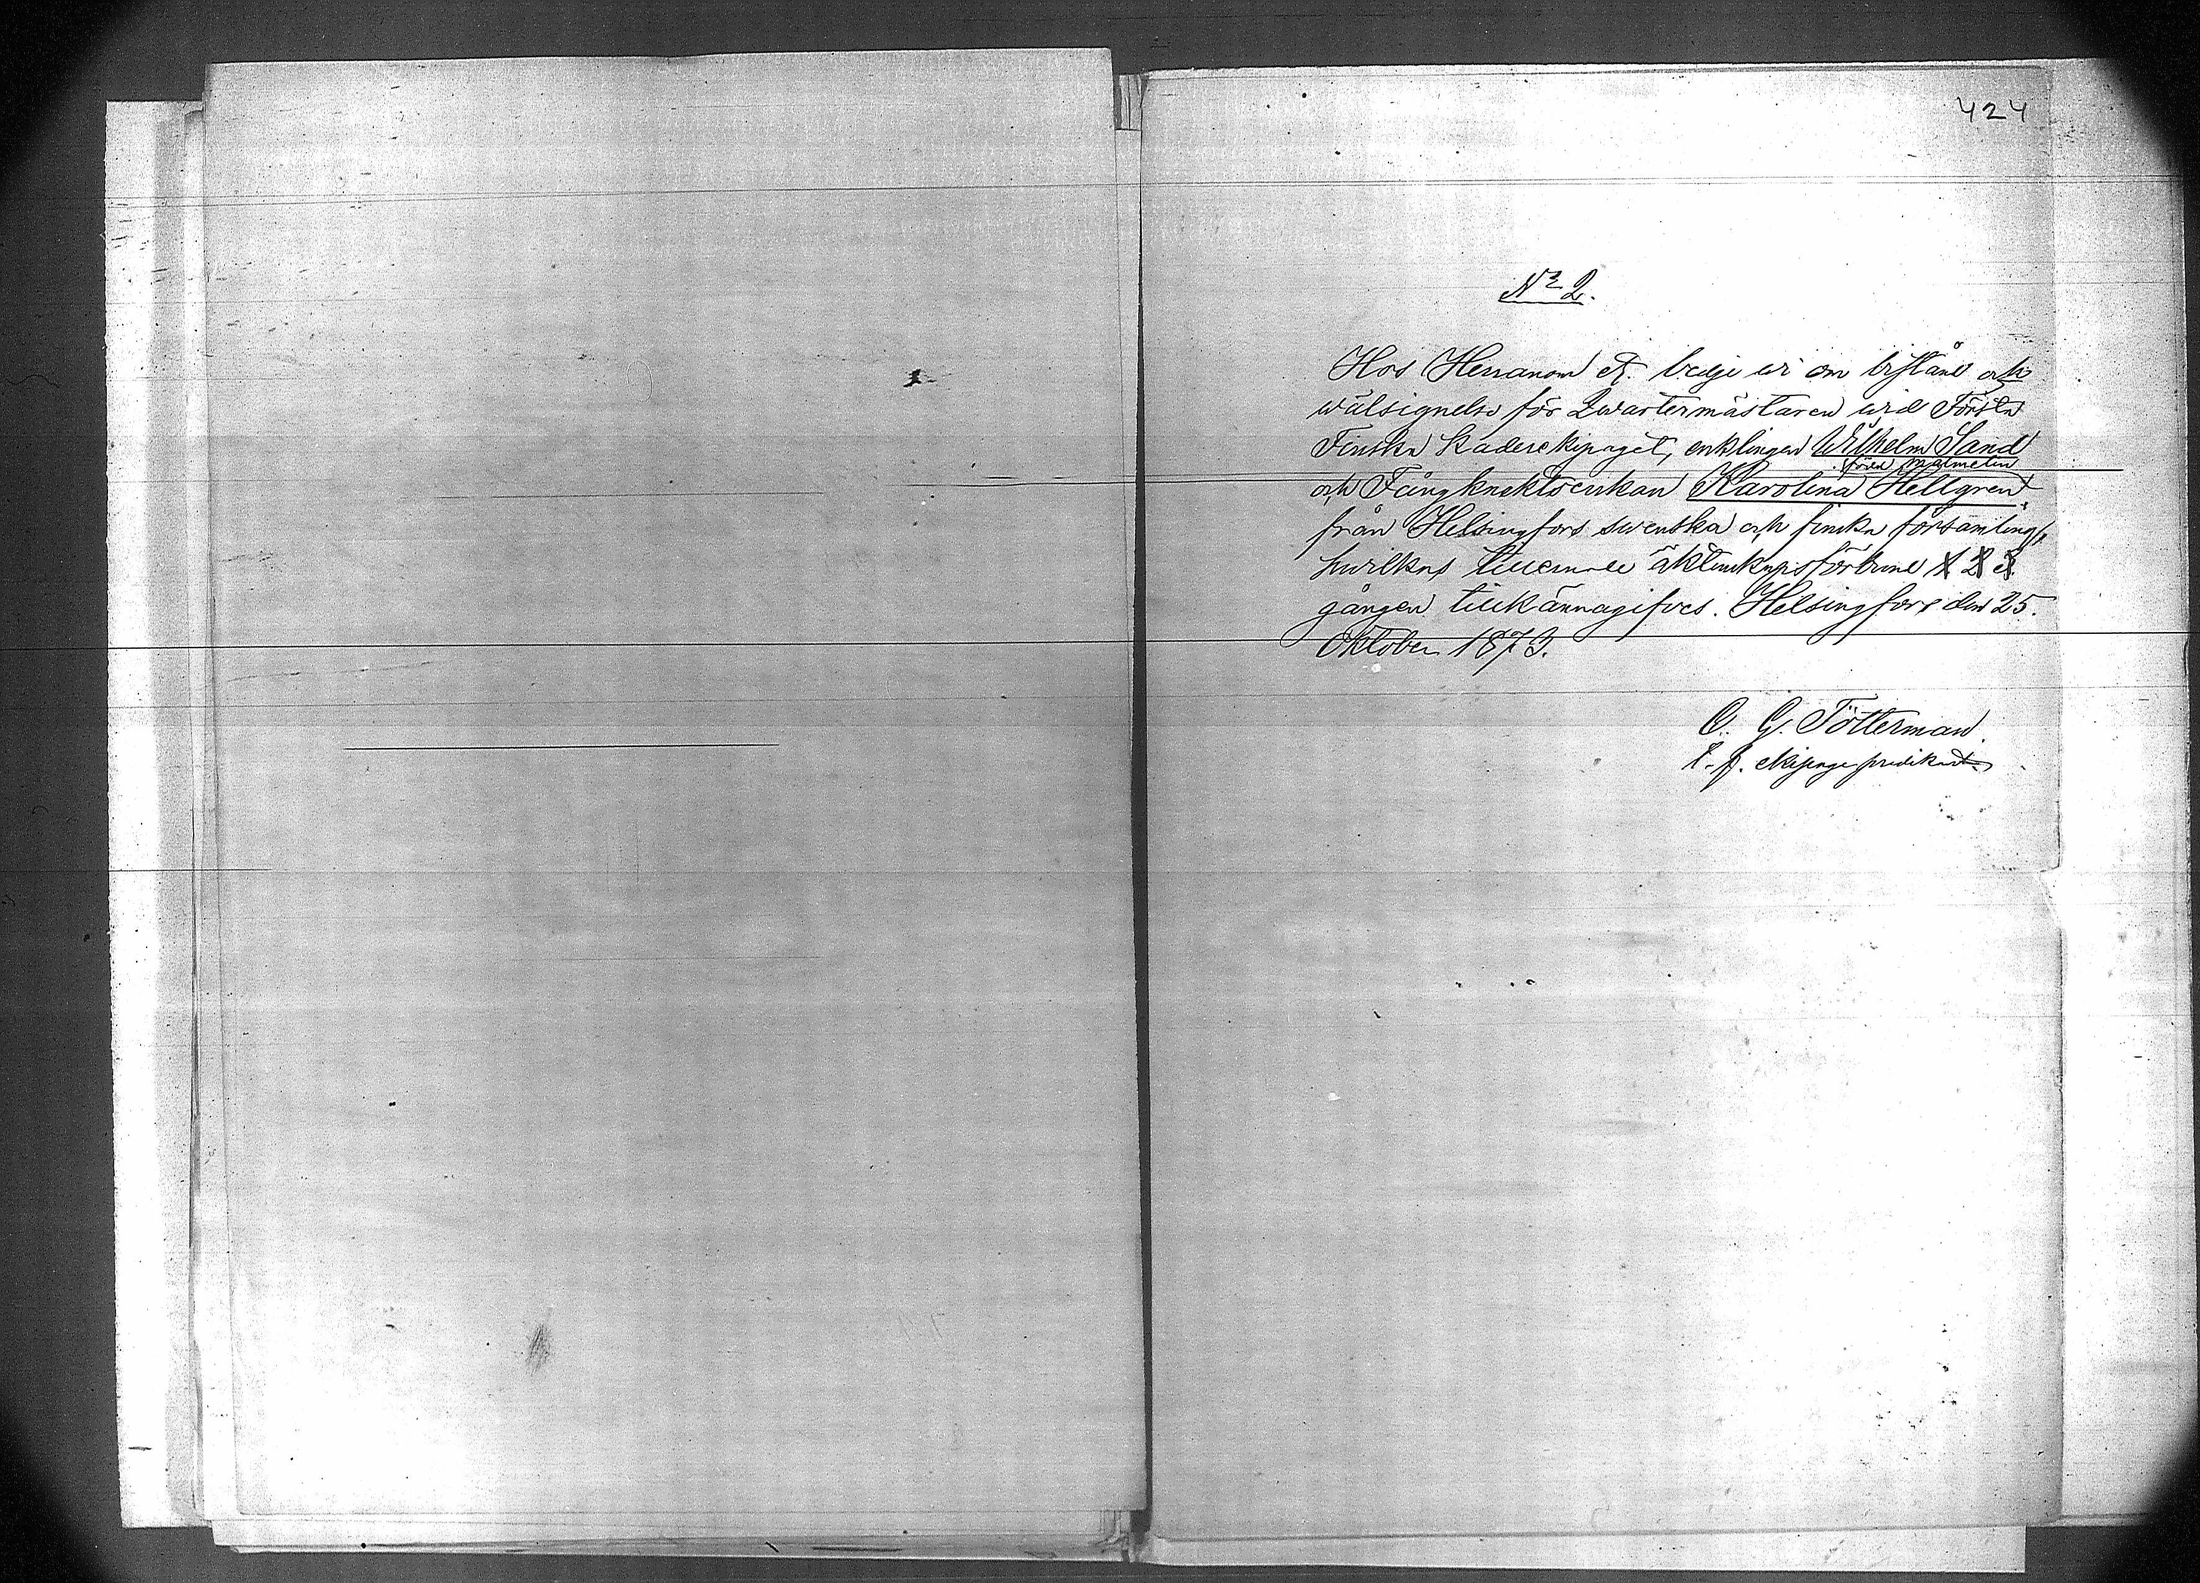 424
N:o 2.
Hos Herranom etc. bedje vi om bistånd och
wälsignelse för Qwartermästaren wid Första
Finska Kaderekipaget, enklingen Wilhelm Sand
född Malmelin
och Fångknektsenkan Karolina Hellgren,
från Helsingfors swenska och finska församling,
hwilkas tillernade äktenskapsförbund 1 2 3
gången tillkännagifves. Helsingfors den 25.
Oktober 1873.
O. G. Tötterman.
t. f. ekipagepredikant.